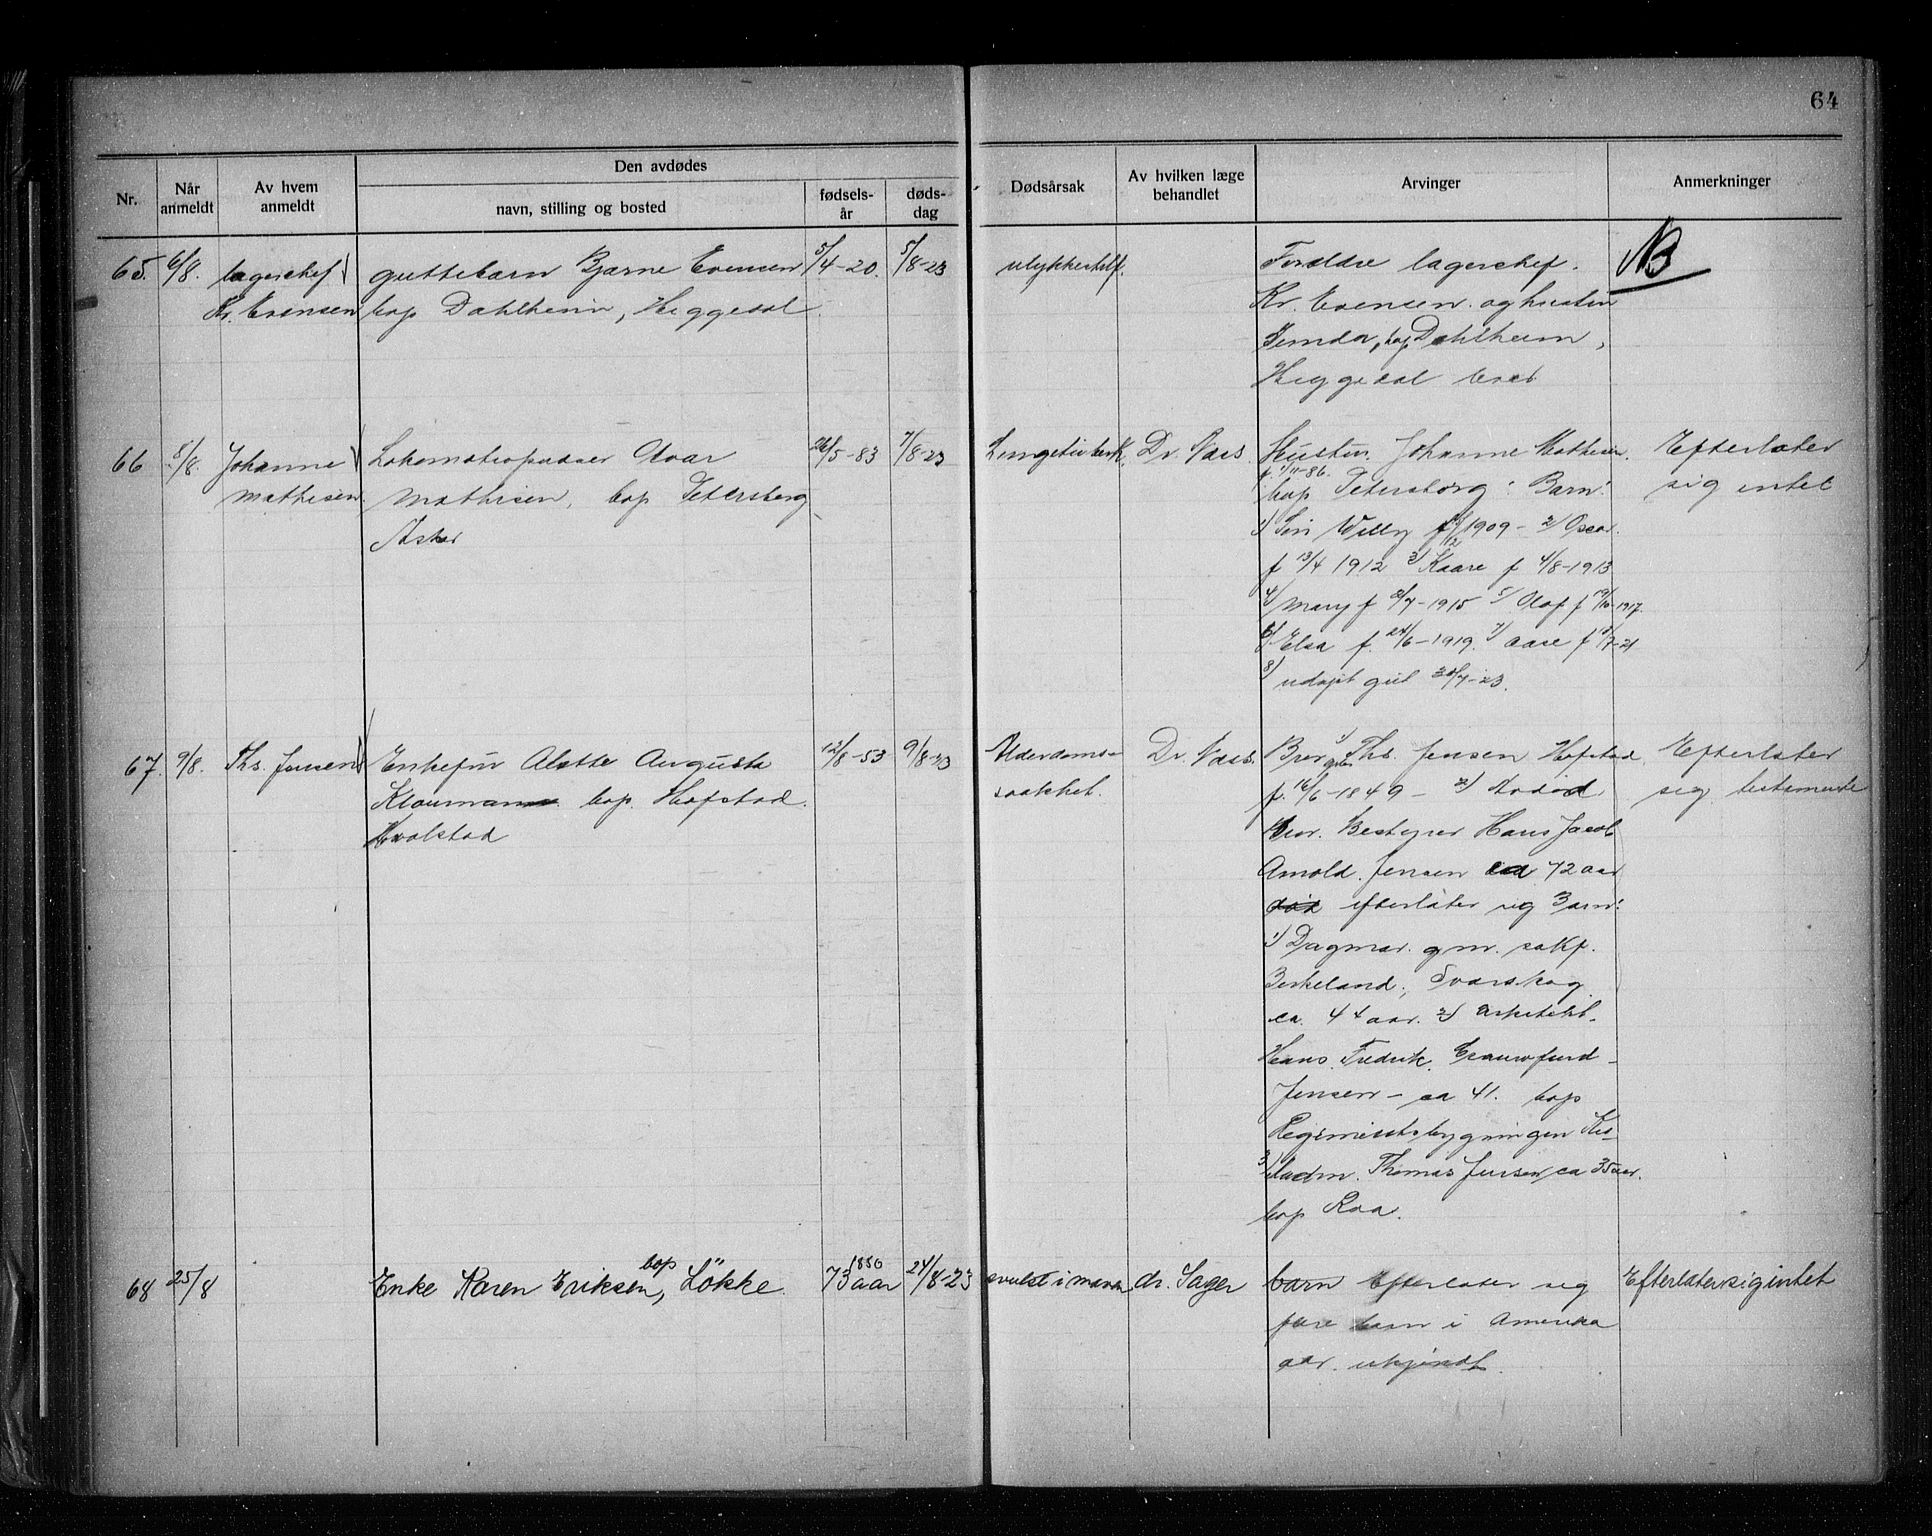 64
Den avdødes
Nr.
Når anmeldt
Av hvem anmeldt
navn, stilling og bosted
fødsels-år
døds-dag
Dødsårsak
Av hvilken læge behandlet
Arvinger
Anmerkninger
65. 6/8. lagerchef guttebarn Bjarne Evensen 5/4-20. 5/8-23 ulykkestilf. Forældre lagerchef. NB
Kr. Evensen bop Dahlheim, Heggedal. Kr. Evensen. og hustru
bop Dahlheim,
Heggedal
66 8/8. Johanne 26/5-83 7/8-23 Dr. Næss. Hustru Johanne Mathisen. Efterlater
f 1/11-86.
Mathisen. Mathisen, bop Petersborg bop Petersborg: Barn: sig intet
Asker 1) Willy 1909 - 2) Oscar.
f 13/4 1912 3) Kaare f 4/8-1913
4) Mary f 8/7-1915 5) Olaf f 19/10-1917.
6) Elsa f. 24/6-1919. 7) Aase f 7-21
8) udøpt 7-23.
67. 9/8. Ths. Jensen Enkefru Augusta 12/8-53 9/8-23 Alderdoms- Dr. Næss. Bror 1) Ths. Jensen Hofstad Efterlater
bop. Hofstad. svakhet. f. 16/6-1849 - 2) Avdød sig testamente
Hvalstad bror. Bestyrer Hans Jacob
Arnold. Jensen ca 72 aar
efterlater sig Barn:
1) Dagmar. gm. sakf.
Birkeland, Svarskog
ca. 44 aar. 2) arkitekt.
Hans. Fredrik. Crawfurd-
Jensen - ca 41. bop
3) Thomas Jensen ca 35 aar.
bop Roa.
68 25/8 Enke Karen Eriksen, bop Løkke. 73 aar 1850 24/8-23 svulst i maven dr. Sager barn Efterlater sig Efterlater sig intet
barn i Amerika
aar. ukjendt.